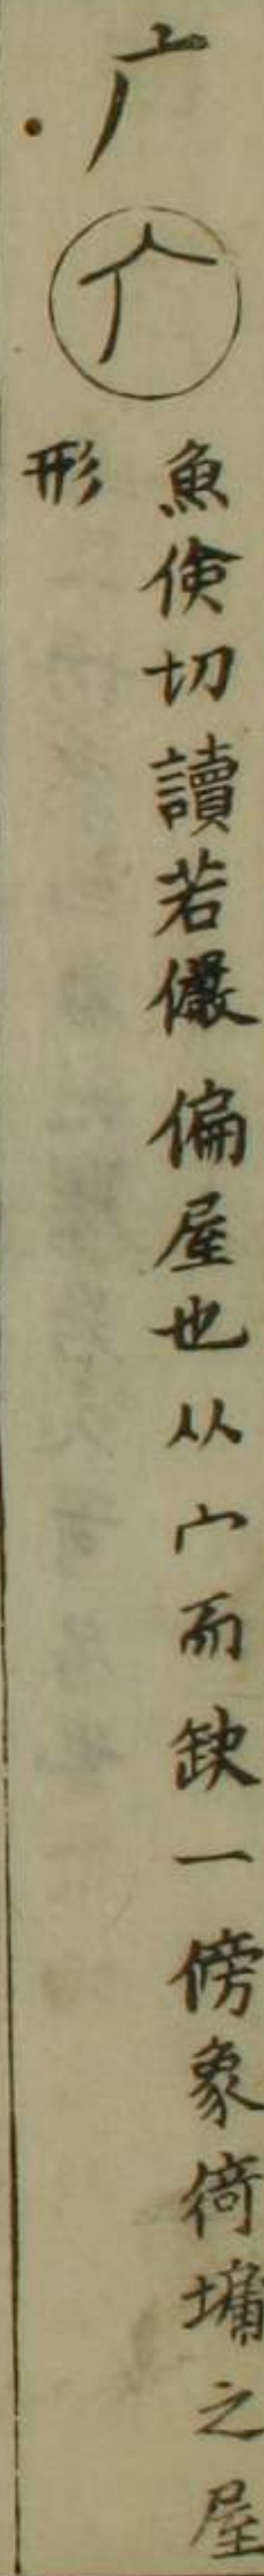 广
广
魚侇切讀若儼偏屋也从宀而缺一傍象倚墉之屋
形